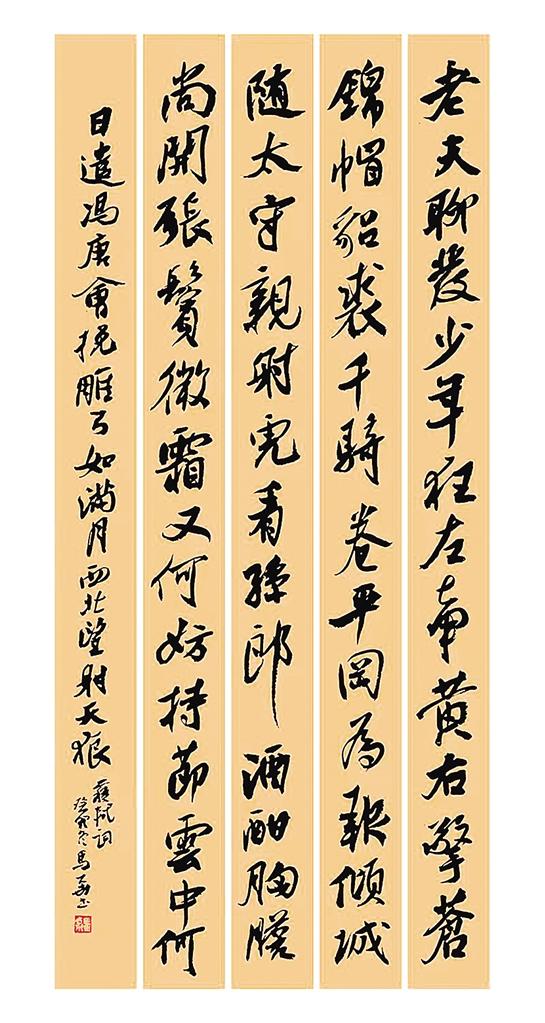 老夫聊發少年狂左牽黄右擎蒼
錦帽貂裘千騎卷平岡為報傾城
随太守親射虎看孫郎酒酣胸膽
尚開張鬢微霜又何妨持節雲中何
日遣馮唐會挽雕弓如滿月西北望射天狼
蘇軾詞
冬馬書